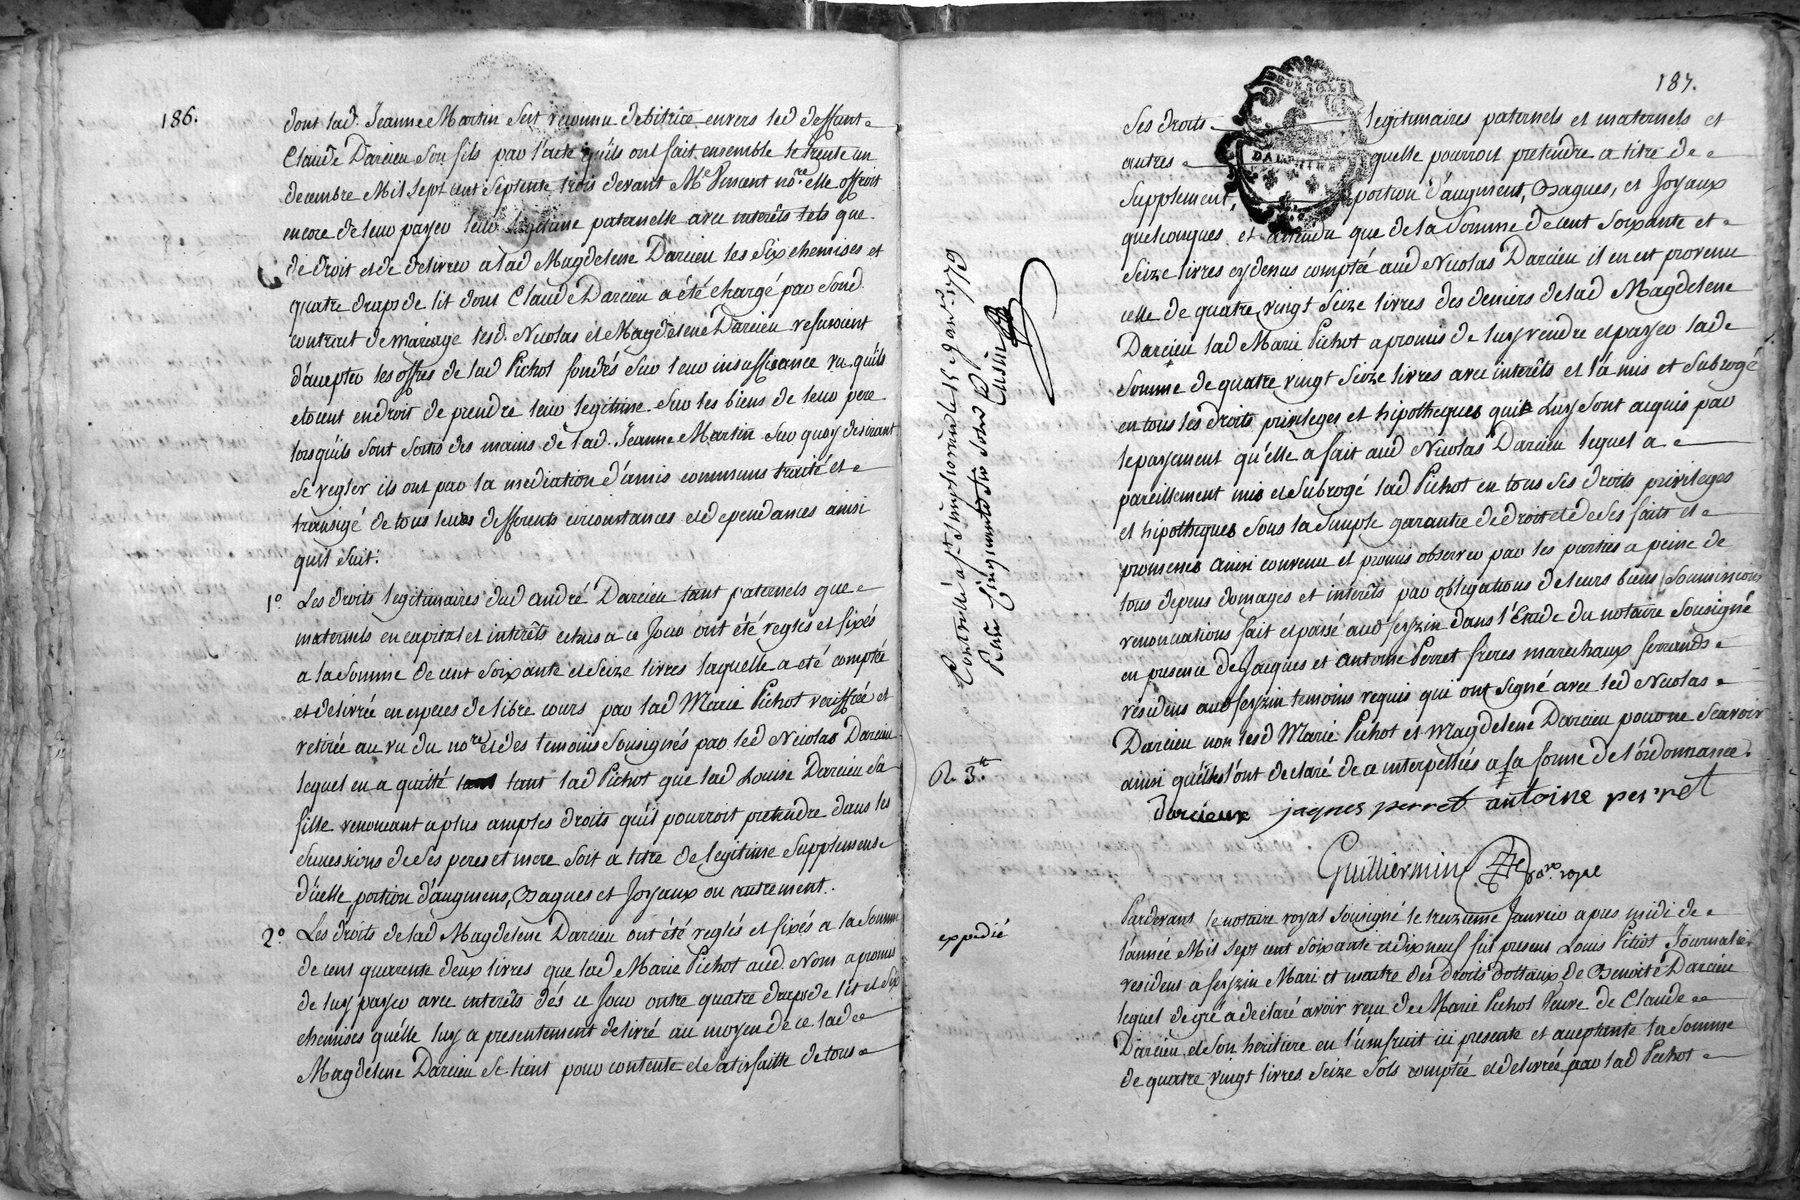 186.
dont lad. Jeanne Martin s'est reconnu debitrice envers led deffunt
Claude Darcieu son fils par l'acte qu'ils ont fait ensemble le trente un
decembre Mil sept cent septente trois devant Me Vincent nore. elle offroit
encore de leur payer leur legitime paternelle avec interêts tels que
de droit et de delivrer a lad Magdelene Darcieu les six chemises et
quatre draps de lit dont Claude Darcieu a été chargé par sond.
contrait de mariage lesd. Nicolas et Magdelene Darcieu refusoient
d'accepter les offres de lad Pichot fondés sur leur insuffisance vu qu'ils
etoient en droit de prendre leur legitime sur les biens de leur pere
lorsqu'ils sont sortis des mains de lad. Jeanne Martin sur quoy desirant
se regler ils ont par la mediation d'amis communs traité et
transigé de tous leurs differents circonstances et dependances ainsi
quil suit:
1o Les droits legitimaires dud andré Darcieu tant paternels que
maternels en capital et interêts echus a ce jour ont été reglés et fixés
a la somme de cent soixante et seize livres laquelle a eté comptée
et delivrée en especes de libre cours par lad Marie Pichot veriffiée et
retirée au vu du nore. et des temoins sousignés par led Nicolas Darcieu
lequel en a quitté tant lad Pichot que lad Louise Darcieu sa
fille renonceant a plus amples droits qu'il pourroit pretendre dans les
successions de ses peres et mere soit a titre de legitime supplement
d'icelle, portion d'augment, Bagues et Joyaux ou autrement.
2o Les droits de lad Magdelene Darcieu ont été reglés et fixés a la somme
de cent quarente deux livres que lad Marie Pichot aud. Nom a promis
de luy payer avec interêts dés ce jour outre quatre draps de lit et six
chemises qu'elle luy a presentement delivré au moyen de ce lad
Magdelene Darcieu se tient pour contente et satisfaitte de tous
187.
DEUX SOLS
DAUPHINÉ
ses droits legitimaires paternels et maternels et
autres quelle pourroit pretendre a titre de
supplement, portion d'augment, Bagues, et Joyaux
quelconques et attendu que de la somme de cent soixante et
seize livres cy dessus comptée aud Nicolas Darcieu il en est provenu
celle de quatre vingt seize livres des deniers de lad Magdelene
Darcieu lad Marie Pichot a promis de luy rendre et payer lade
somme de quatre vingt seize livres avec interêts et l'a mis et subrogé
en tous les droits privileges et hipotheques qui luy sont acquis par
le payement qu'elle a fait aud Nicolas Darcieu lequel a
pareillement mis et subrogé lad Pichot en tous ses droits privileges
et hipotheques sous la simple garantie de droit et de ses faits et
promesses ainsi convenu et promis observer par les parties a peine de
tous depens domages et interêts par obligations de leurs biens soumissions
renonciations fait et passé aud feyzin dans l'Etude du notaire sousigné
en presence de Jacques et antoine Perret freres marechaux ferrands
résidens aud feyzin temoins requis qui ont signé avec led Nicolas
Darcieu non lesd Marie Pichot et Magdelene Darcieu pour ne scavoir
ainsi qu'elles l'ont declaré de ce interpellées a la forme de l'ordonnance.
darcieux jaques perret antoine perret
Guilliermin nore. royal
Controllé a St. Simphorien le 15 janvr. 1779
Reçu Cinquante six sols
R. 3.tt
expedié
Pardevant le notaire royal sousigné le treizieme Janvier apres midi de
l'année Mil sept cent soixante et dix neuf fut present Louis Pitiot Journalier
resident a feyzin Mari et maitre des droits dottaux de Benoite Darcieu
lequel de gré a declaré avoir reçu de Marie Pichot Veuve de Claude
Darcieu et son heritiere en l'usufruit ici presente et acceptante la somme
de quatre vingt livres seize sols comptée et delivrée par lad Pichot